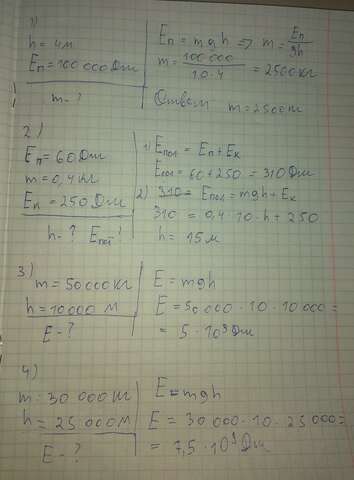 1)
h = 4м
Eп = 100 000 Дж
m - ?
Eп = mgh => m = Eп/gh
m = 100000/10·4 = 2500 кг
Ответ m = 2500 кг
2)
Eп = 60 Дж
m = 0,4 кг
Eк = 250 Дж
h - ? Eпол - ?
1) Eпол = Eп + Eк
Eпол = 60 + 250 = 310 Дж
2) 310 = Eпол = mgh + Eк
310 = 0,4·10·h + 250
h = 15 м
3)
m = 50000 кг
h = 10000 м
E - ?
E = mgh
E = 50 000 · 10 · 10 000 =
= 5 · 10⁹ Дж
4)
m = 30 000 кг
h = 25 000 м
E - ?
E = mgh
E = 30 000 · 10 · 25 000 =
= 7,5 · 10⁹ Дж